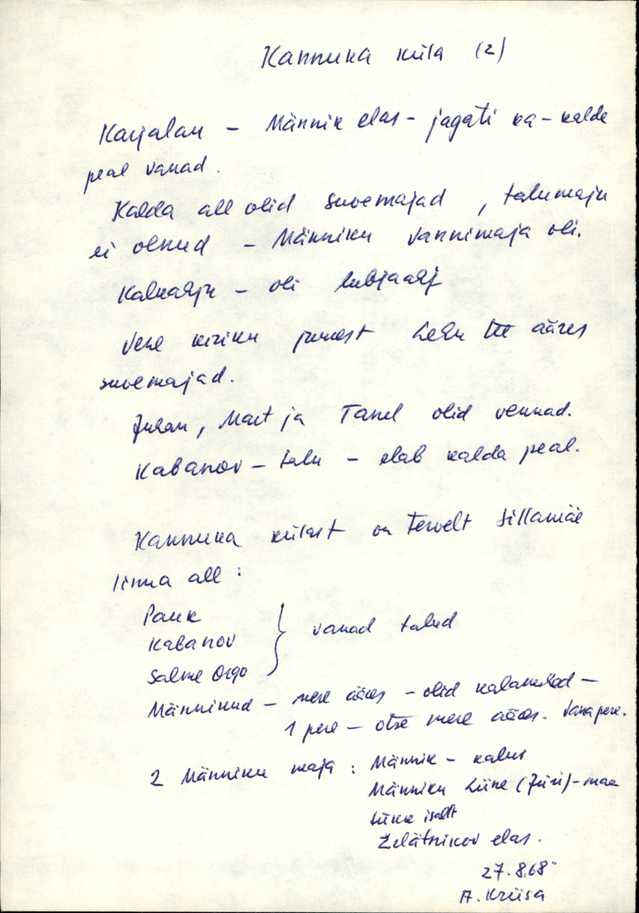 Kannuka küla (2)
Karjalan – Männik elas – jagati ka – kalda
peal vanad.
Kalda all olid suvemajad, talumaju
ei olnud – Männiku vannimaja oli.
Kalmalju – oli lubjaahj
Vene kiriku juurest tee ääres
suvemajad.
Juhan, Mart ja Tanel olid vennad.
Kabanov – talu – elab kalda peal.
Kannuka külast on tervelt Sillamäe
linna all:
Pauk
Kabanov
Salme Orgo
} vanad talud
Männikud – mere ääres – olid kalamehed –
1 pere – otse mere ääres. Vana pere.
2 Männiku maja: Männik – kalur
Männiku Liine (Jüri) – maa
Liine isalt
Želätnikov elas.
27.8.68
A. Kriisa